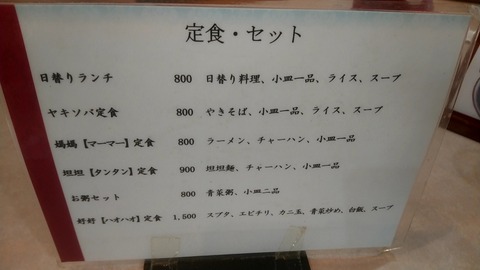 定食・セット
日替りランチ 800 日替り料理、小皿一品、ライス、スープ
ヤキソバ定食 800 やきそば、小皿一品、ライス、スープ
媽媽【マーマー】定食 800 ラーメン、チャーハン、小皿一品
坦坦【タンタン】定食 900 坦坦麺、チャーハン、小皿一品
お粥セット 800 青菜粥、小皿二品
好好【ハオハオ】定食 1,500 スブタ、エビチリ、カニ玉、青菜炒め、白飯、スープ